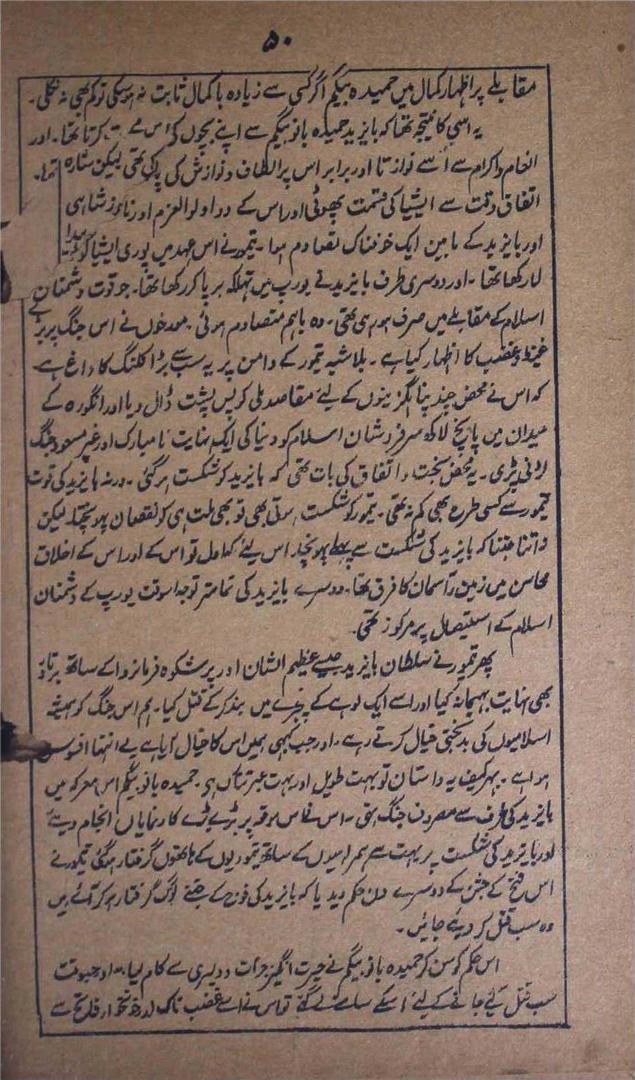 ۵۰
مقابلے پر اظہار کمال میں حمیدہ بیگم اگر کسی سے زیادہ باکمال ثابت نہ ہو سکی تو کم بھی نہ نکلی۔
یہ اسی کا نتیجہ تھا کہ بایزید حمیدہ بانو بیگم سے اپنے بچوں کی کرتا تھا۔ اور
انعام و اکرام سے اسے نوازتا اور برابر اس پر الطاف و نوازش کی تھی لیکن ستارہ
اتفاق وقت سے ایشیا کی قسمت پھوٹی اور اس کے دو اولوالعزم اور نامور شاہی
اور بایزید کے مابین ایک خوفناک تصادم ہوا۔ تیمور نے اس عہد میں پوری ایشیا کو
لا رکھا تھا۔ اور دوسری طرف بایزید نے یورپ میں تہلکہ برپا کر رکھا تھا۔ جو قوت دشمنان
اسلام کے مقابلے میں صرف ہو رہی تھی۔ وہ باہم متصادم ہوئی مورخوں نے اس جنگ پر بڑے
غیظ و غضب کا اظہار کیا ہے۔ بلاشبہ تیمور کے دامن پر یہ سب سے بڑا کلنک کا داغ ہے
کہ اس نے محض چند پناہ گزینوں کے لئے مقاصد ملی کو پس پشت ڈال دیا اور انگورہ کے
میدان میں پانچ لاکھ سرفروشان اسلام کو دنیا کی ایک نہایت نامبارک اور غیر مسعود جنگ
لڑنی پڑی۔ یہ محض بخت و اتفاق کی بات تھی کہ بایزید کو شکست ہو گئی۔ ورنہ بایزید کی قوت
تیمور سے کسی طرح بھی کم نہ تھی۔ تیمور کو شکست ہوتی بھی تو بھی ملت ہی کو نقصان پہونچتا۔ لیکن
اتنا جتنا کہ بایزید کی شکست سے پہلے پہونچا۔ اس لئے کہ اول تو اس کے اور اس کے اخلاق
محاسن میں زمین و آسمان کا فرق تھا۔ دوسرے بایزید کی تمامتر توجہ اسوقت یورپ کے دشمنان
اسلام کے استیصال پر مرکوز تھی۔
پھر تیمور نے سلطان بایزید جیسے عظیم الشان اور پرشکوہ فرمانروا کے ساتھ برتاؤ
بھی نہایت بہیمانہ کیا اور اسے ایک لوہے کے پنجرے میں بند کر کے قتل کیا۔ ہم اس جنگ کو ہمیشہ
اسلامیوں کی بدبختی خیال کرتے رہے۔ اور جب کبھی ہمیں اس کا خیال آیا ہے بے انتہا افسوس
ہوا ہے۔ بہرکیف یہ داستان تو بہت طویل اور بہت عبرتناک ہے۔ حمیدہ بانو بیگم اس معرکہ میں
بایزید کی طرف سے مصروف جنگ تھی۔ اس نے اس موقعہ پر بڑے بڑے کارنمایاں انجام دیئے
اور بایزید کی شکست پر بہت سے ہمراہیوں کے ساتھ تیموریوں کے ہاتھوں گرفتار ہو گئی تیمور نے
اس فتح کے جشن کے دوسرے دن حکم دیدیا کہ بایزید کی فوج کے جتنے لوگ گرفتار ہو کر آئے ہیں
وہ سب قتل کر دیئے جائیں۔
اس حکم کو سن کر حمیدہ بانو بیگم نے حیرت انگیز جرات و دلیری سے کام لیا۔ اور جبوقت
سب قتل کئے جانے کے لئے اسکے سامنے لائے گئے تو اس نے اسے غضب ناک اور خونخوار فاتح سے